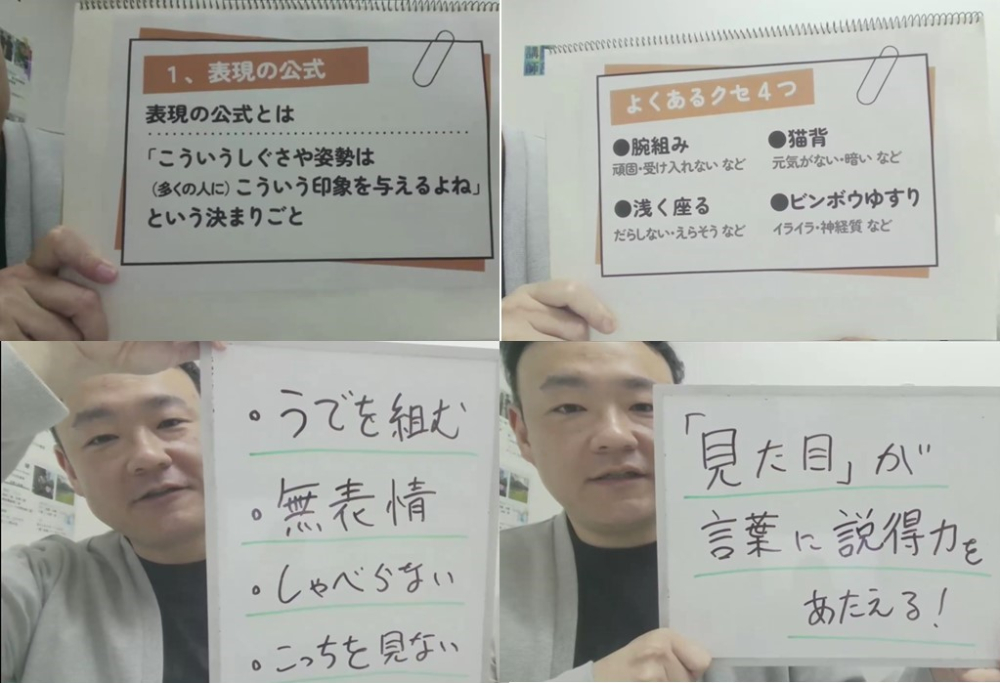 1、表現の公式
表現の公式とは
「こういうしぐさや姿勢は
（多くの人に）こういう印象を与えるよね」
という決まりごと
よくあるクセ4つ
●腕組み
頑固・受け入れない など
●猫背
元気がない・暗い など
●浅く座る
だらしない・えらそう など
●ビンボウゆすり
イライラ・神経質 など
・うでを組む
・無表情
・しゃべらない
・こっちを見ない
「見た目」が
言葉に説得力を
あたえる!